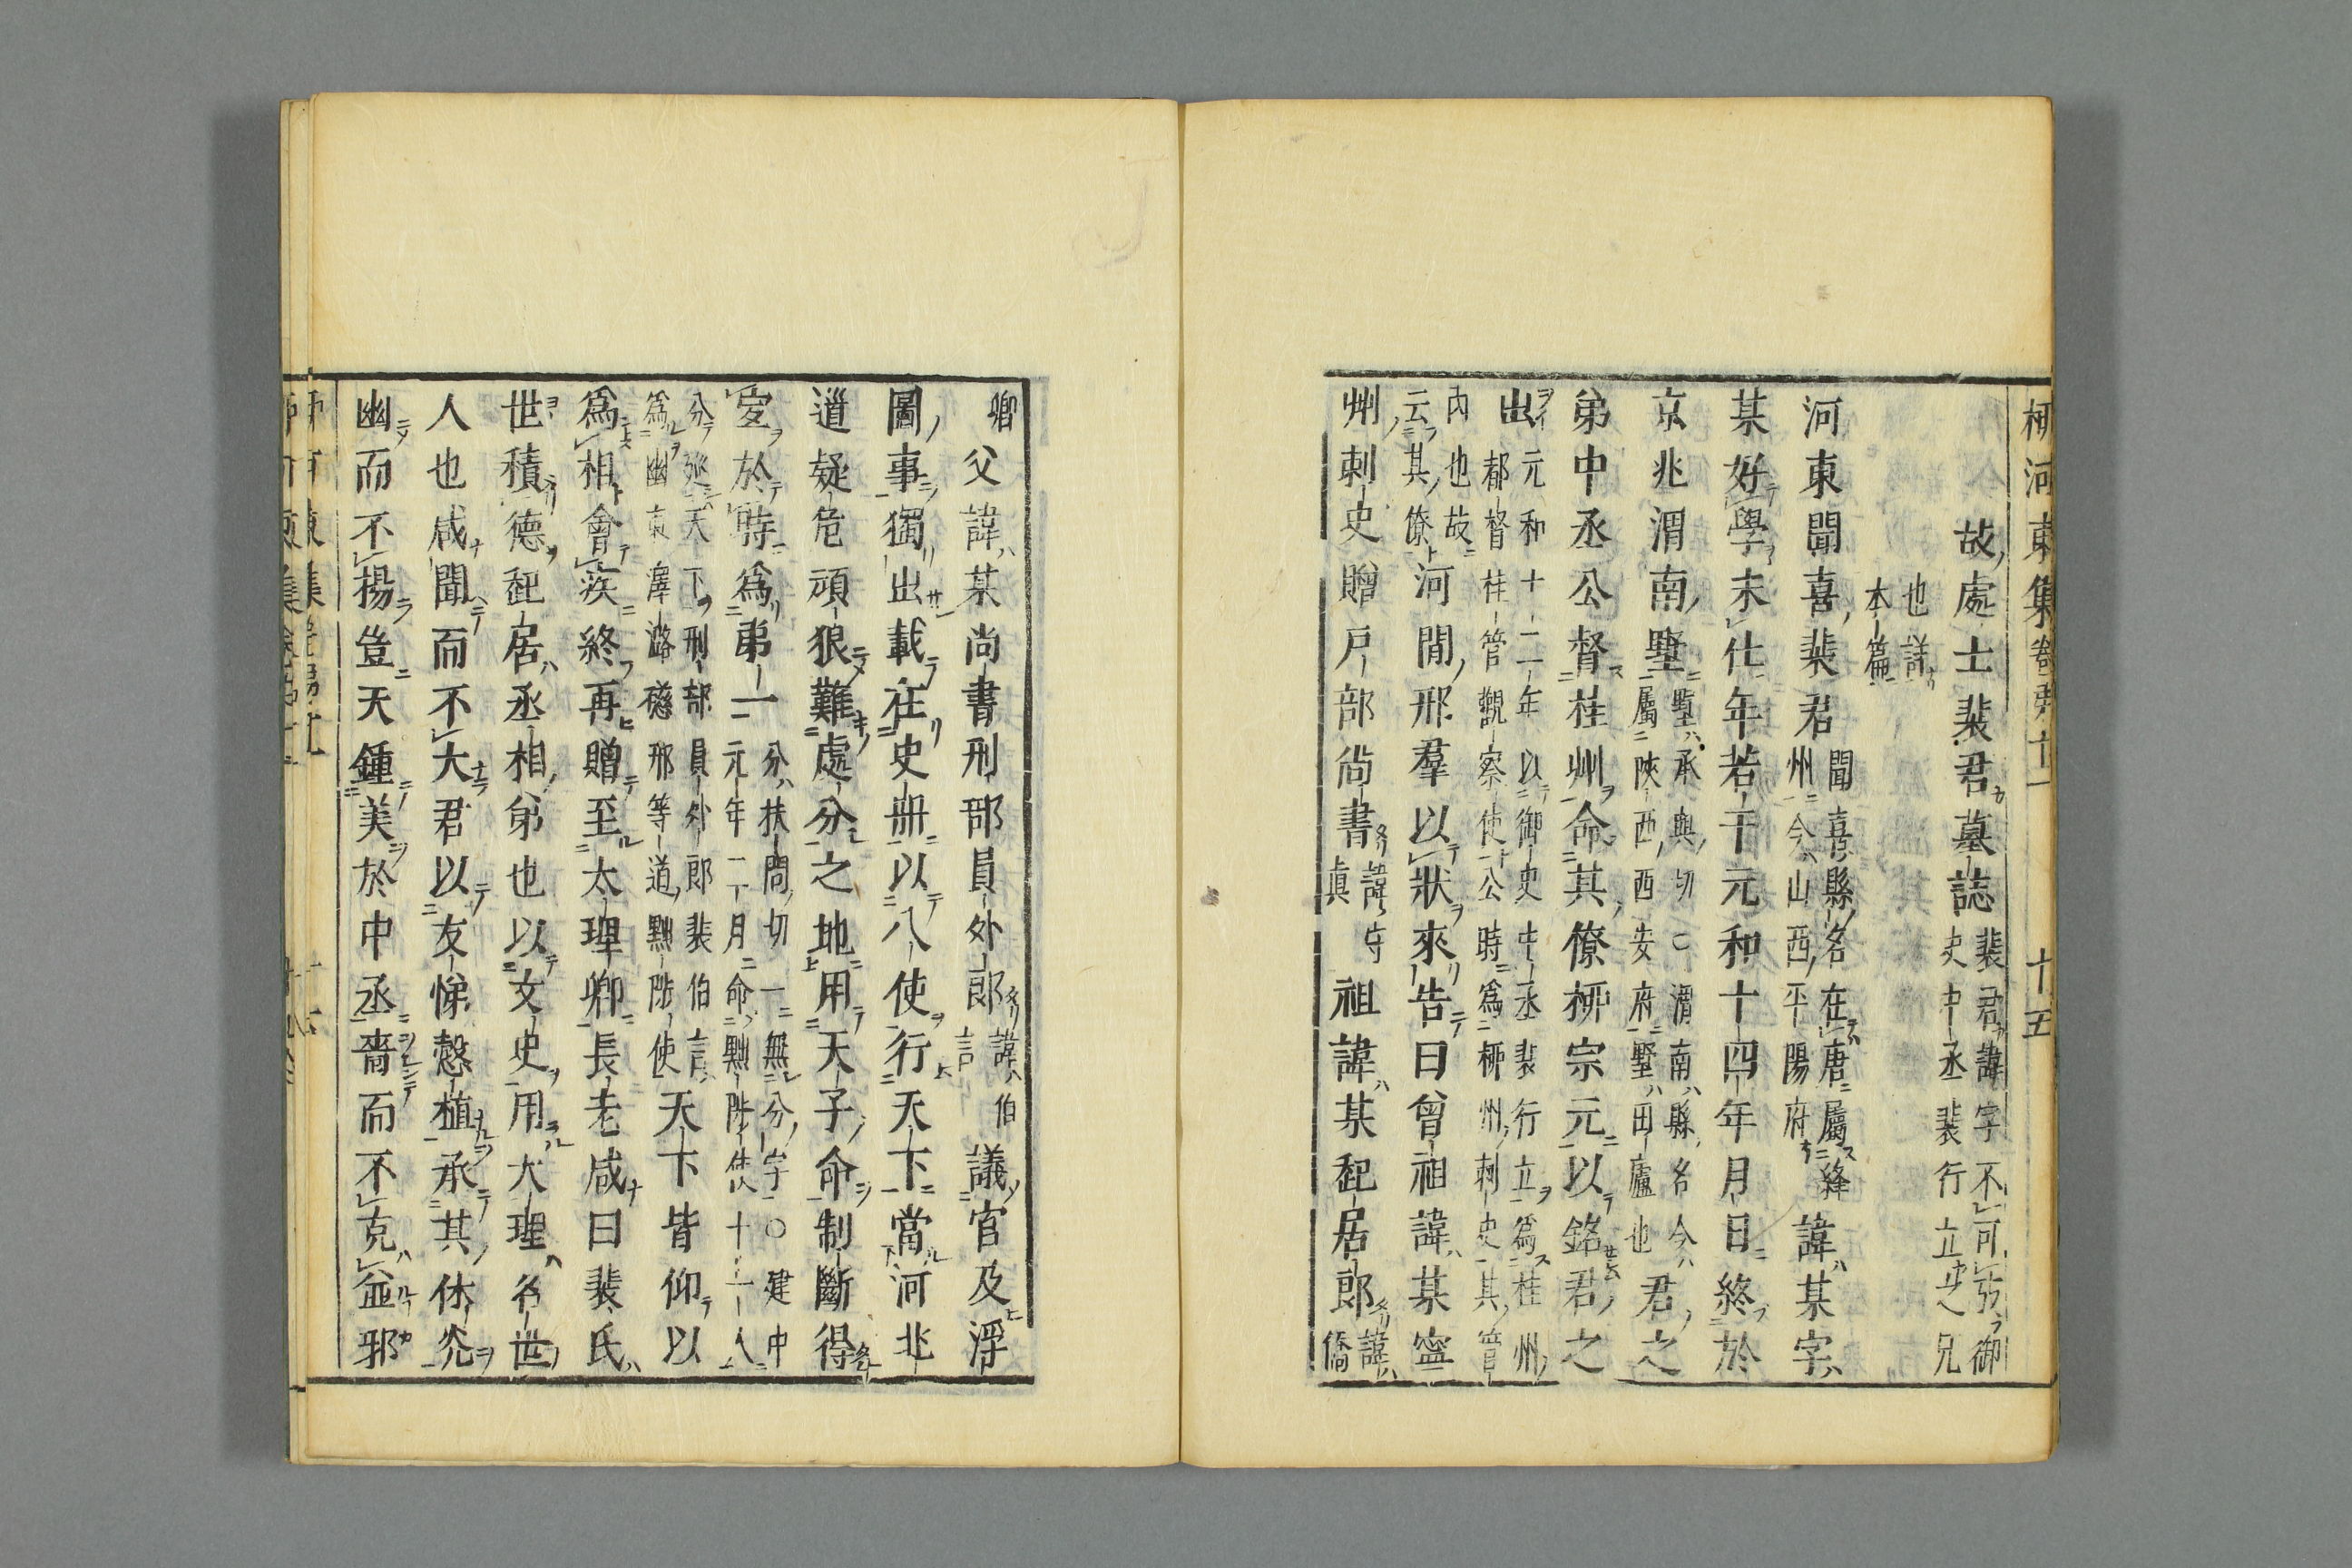 柳河東集卷第十一 十五
故處士裴君墓誌 裴君諱字不可弦御
史中丞裴行立史兄
也詳
本篇
河東聞喜裴君 聞喜縣名在唐屬絳
州今山西平陽府 諱某字
某好學未仕年若干元和十四年月日終於
京兆渭南墅 墅承與切〇渭南縣名今
屬陝西西安府墅田廬也 君之
弟中丞公督桂州命其僚柳宗元以銘君之
出 元和十二年以御史中丞裴行立爲桂州
都督桂管觀察使公時爲柳州刺史其管
內也故
云其僚 河閒邢羣以狀來告曰曾祖諱某寧
州刺史贈戶部尚書 諱守
眞 祖諱某起居郎 諱僑
卿 父諱某尚書刑部員外郎 諱伯
言 議官及浮
圖事獨出載在史册以八使行天下當河北
道疑危頑狠難處分之地用天子命制斷得
宜於時爲弟一 分扶問切一無分字〇建中
元年二月命黜陟使十一人
分巡天下刑部員外郎裴伯言
爲幽 澤潞磁邢等道黜陟使 天下皆仰以
爲相會疾終再贈至太理卿長老咸曰裴氏
世積德起居丞相弟也以文史用大理名世
人也咸聞而不大君以友悌愨植承其休宂
幽而不揚豈天鍾美於中丞嗇而不克並邪